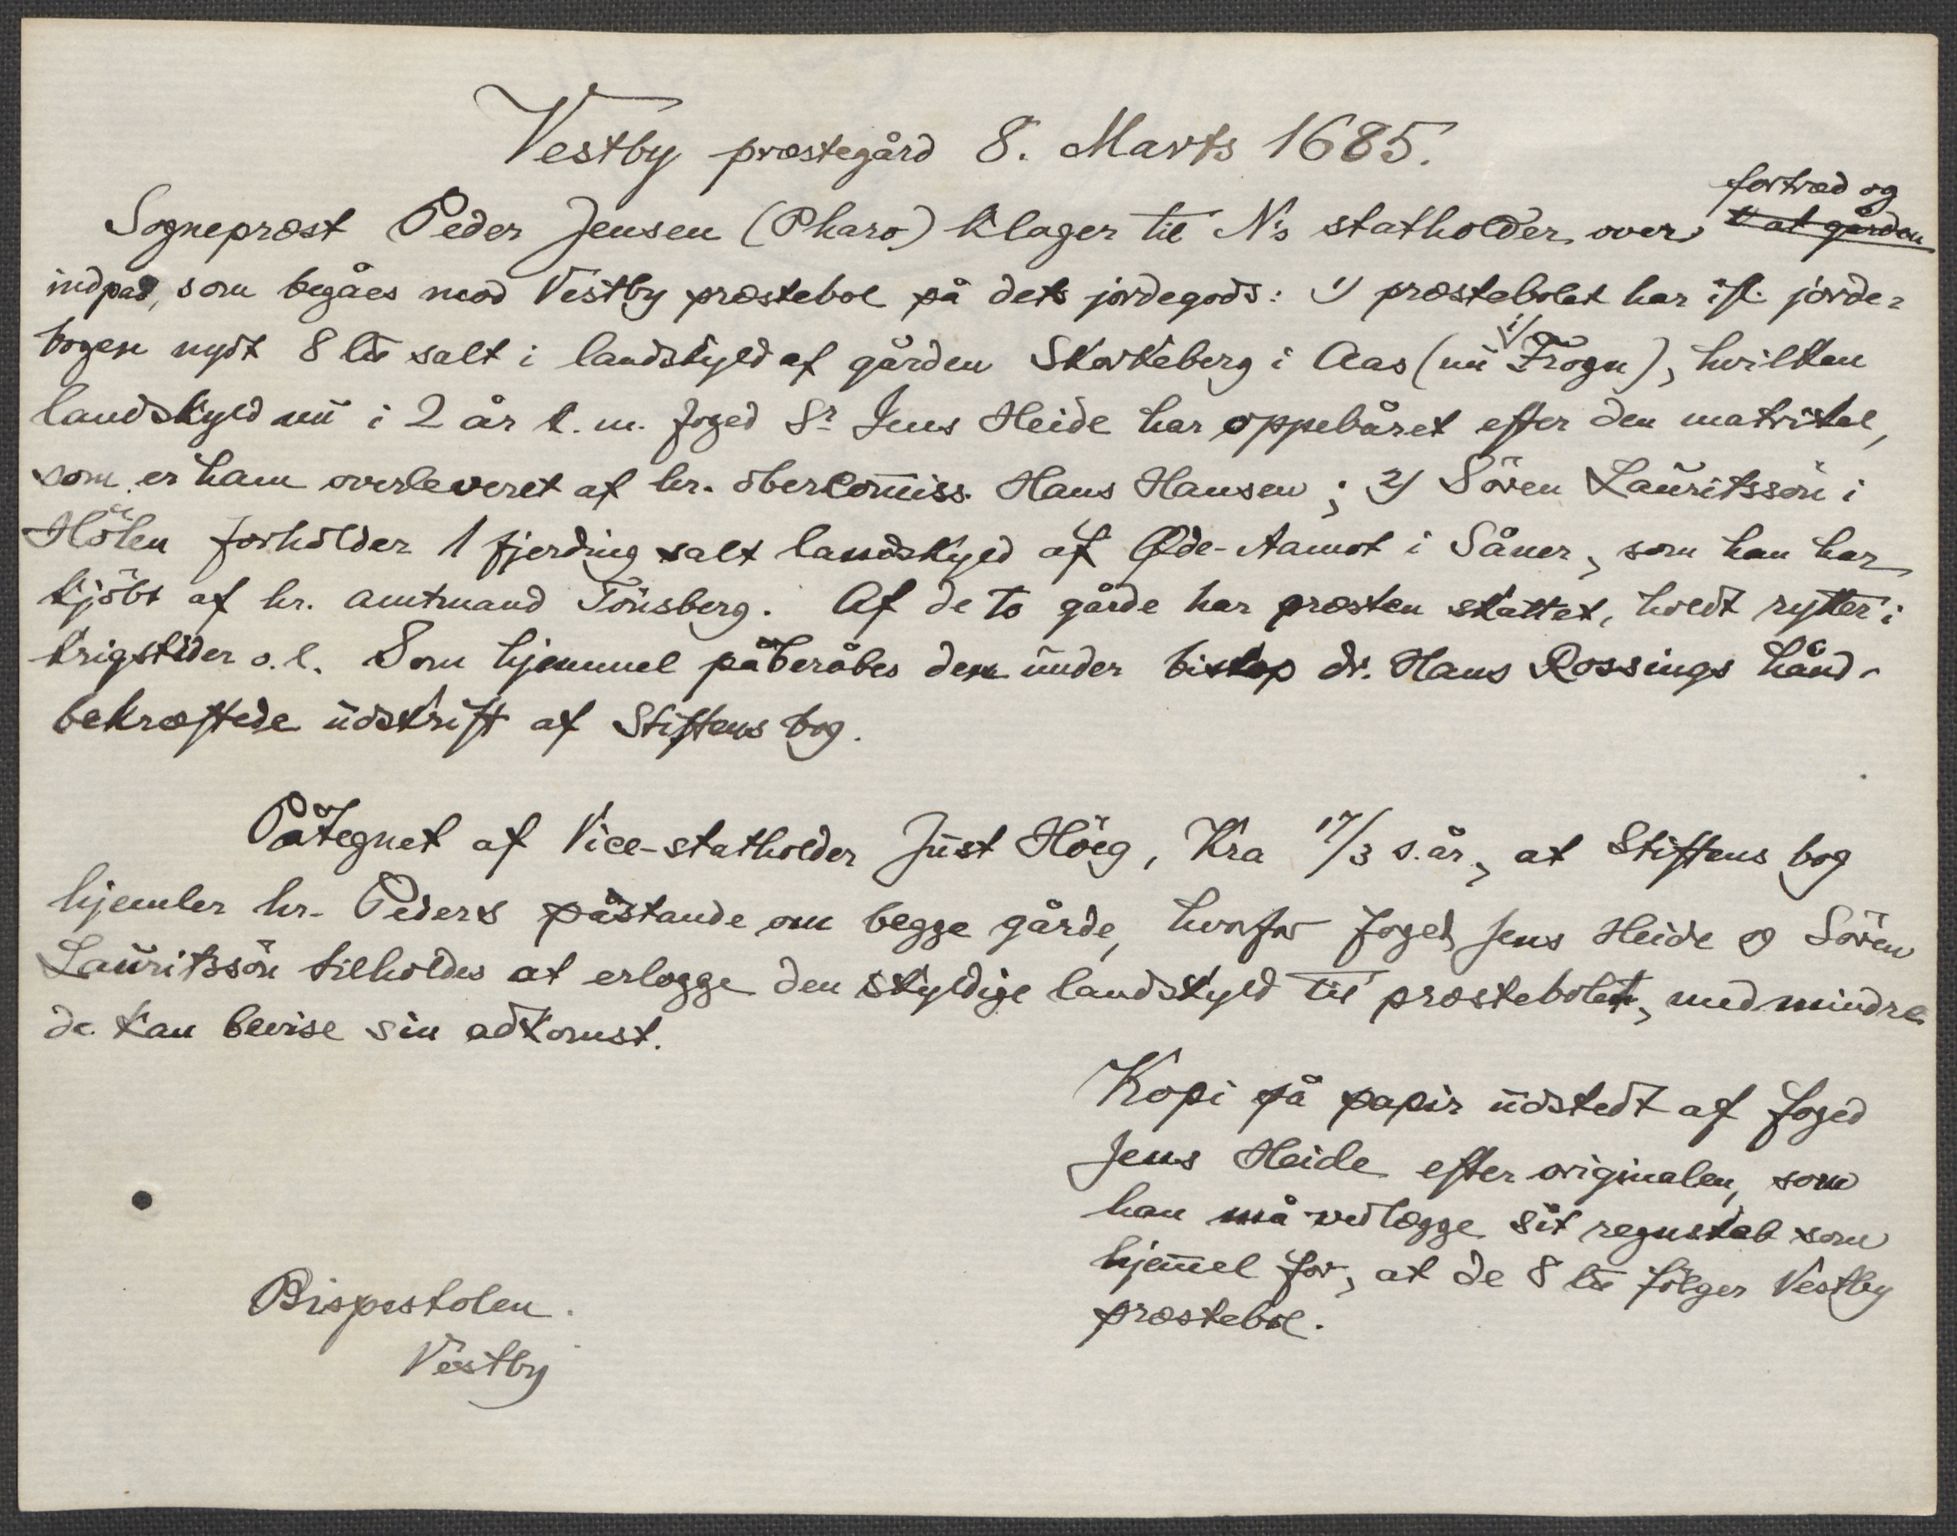 Vestby præstegård 8. Marts 1685.
fortræd og
Sognepræst Peder Jensen (Pharo) klager til N's statholder over at gården
indpas, som begåes mod Vestby præstebol på dets jordegods: 1) præstebolet har ifl. jorde=
bogen nydt 8 lis salt i landskyld af gården Skorkeberg i Aas (nu i Frogn), hvilken
landskyld nu i 2 år k. m. foged Sr Jens Heide har oppebåret efter den matrikel,
som er ham overleveret af hr. obercom̄iss. Hans Hansen; 2) Sören Lauritssön i
Hölen forholder 1 fjerding salt landskyld af Øde-Aamot i Såner, som han har
kjöbt af hr. amtmand Tönsberg. Af de to gårde har præsten skattet, holdt rytter i
krigstider o.l. Som hjemmel påberåbes den under biskop dr. Hans Rossings hånd
bekræftede udskrift af Stiftens bog.
Påtegnet af Vice-statholder Just Höeg, Kra 17/3 s. år, at Stiftens bog
hjemler hr. Peders påstande om begge gårde, hvorfor foged Jens Heide og Sören
Lauritssön tilholdes at erlægge den skyldige landskyld til præstebolet, med mindre
de kan bevise sin adkomst.
Kopi på papir udstedt af foged
Jens Heide efter originalen, som
han må vedlægge sit regnskab som
hjem̄el for, at de 8 lis fölger Vestby
præstebol.
Bispestolen.
Vestby